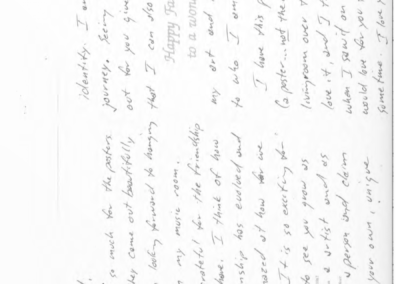 so much for the posters.
they come out beautifully
looking forward to hanging
my music room.
grateful for the friendship
here. I think of how
nship has evolved and
mazed at how far we
It is so exciting for
to see you grow as
artist and as
person and claim
your own, unique
identity. I
journey. Seeing
out for you give
that I can also
Happy Fa
to a wom
my art and
to who I am
I have this p
(a poster... not the
livingroom over t
love it, and I t
when I saw it on
would love for you
sometime. I love